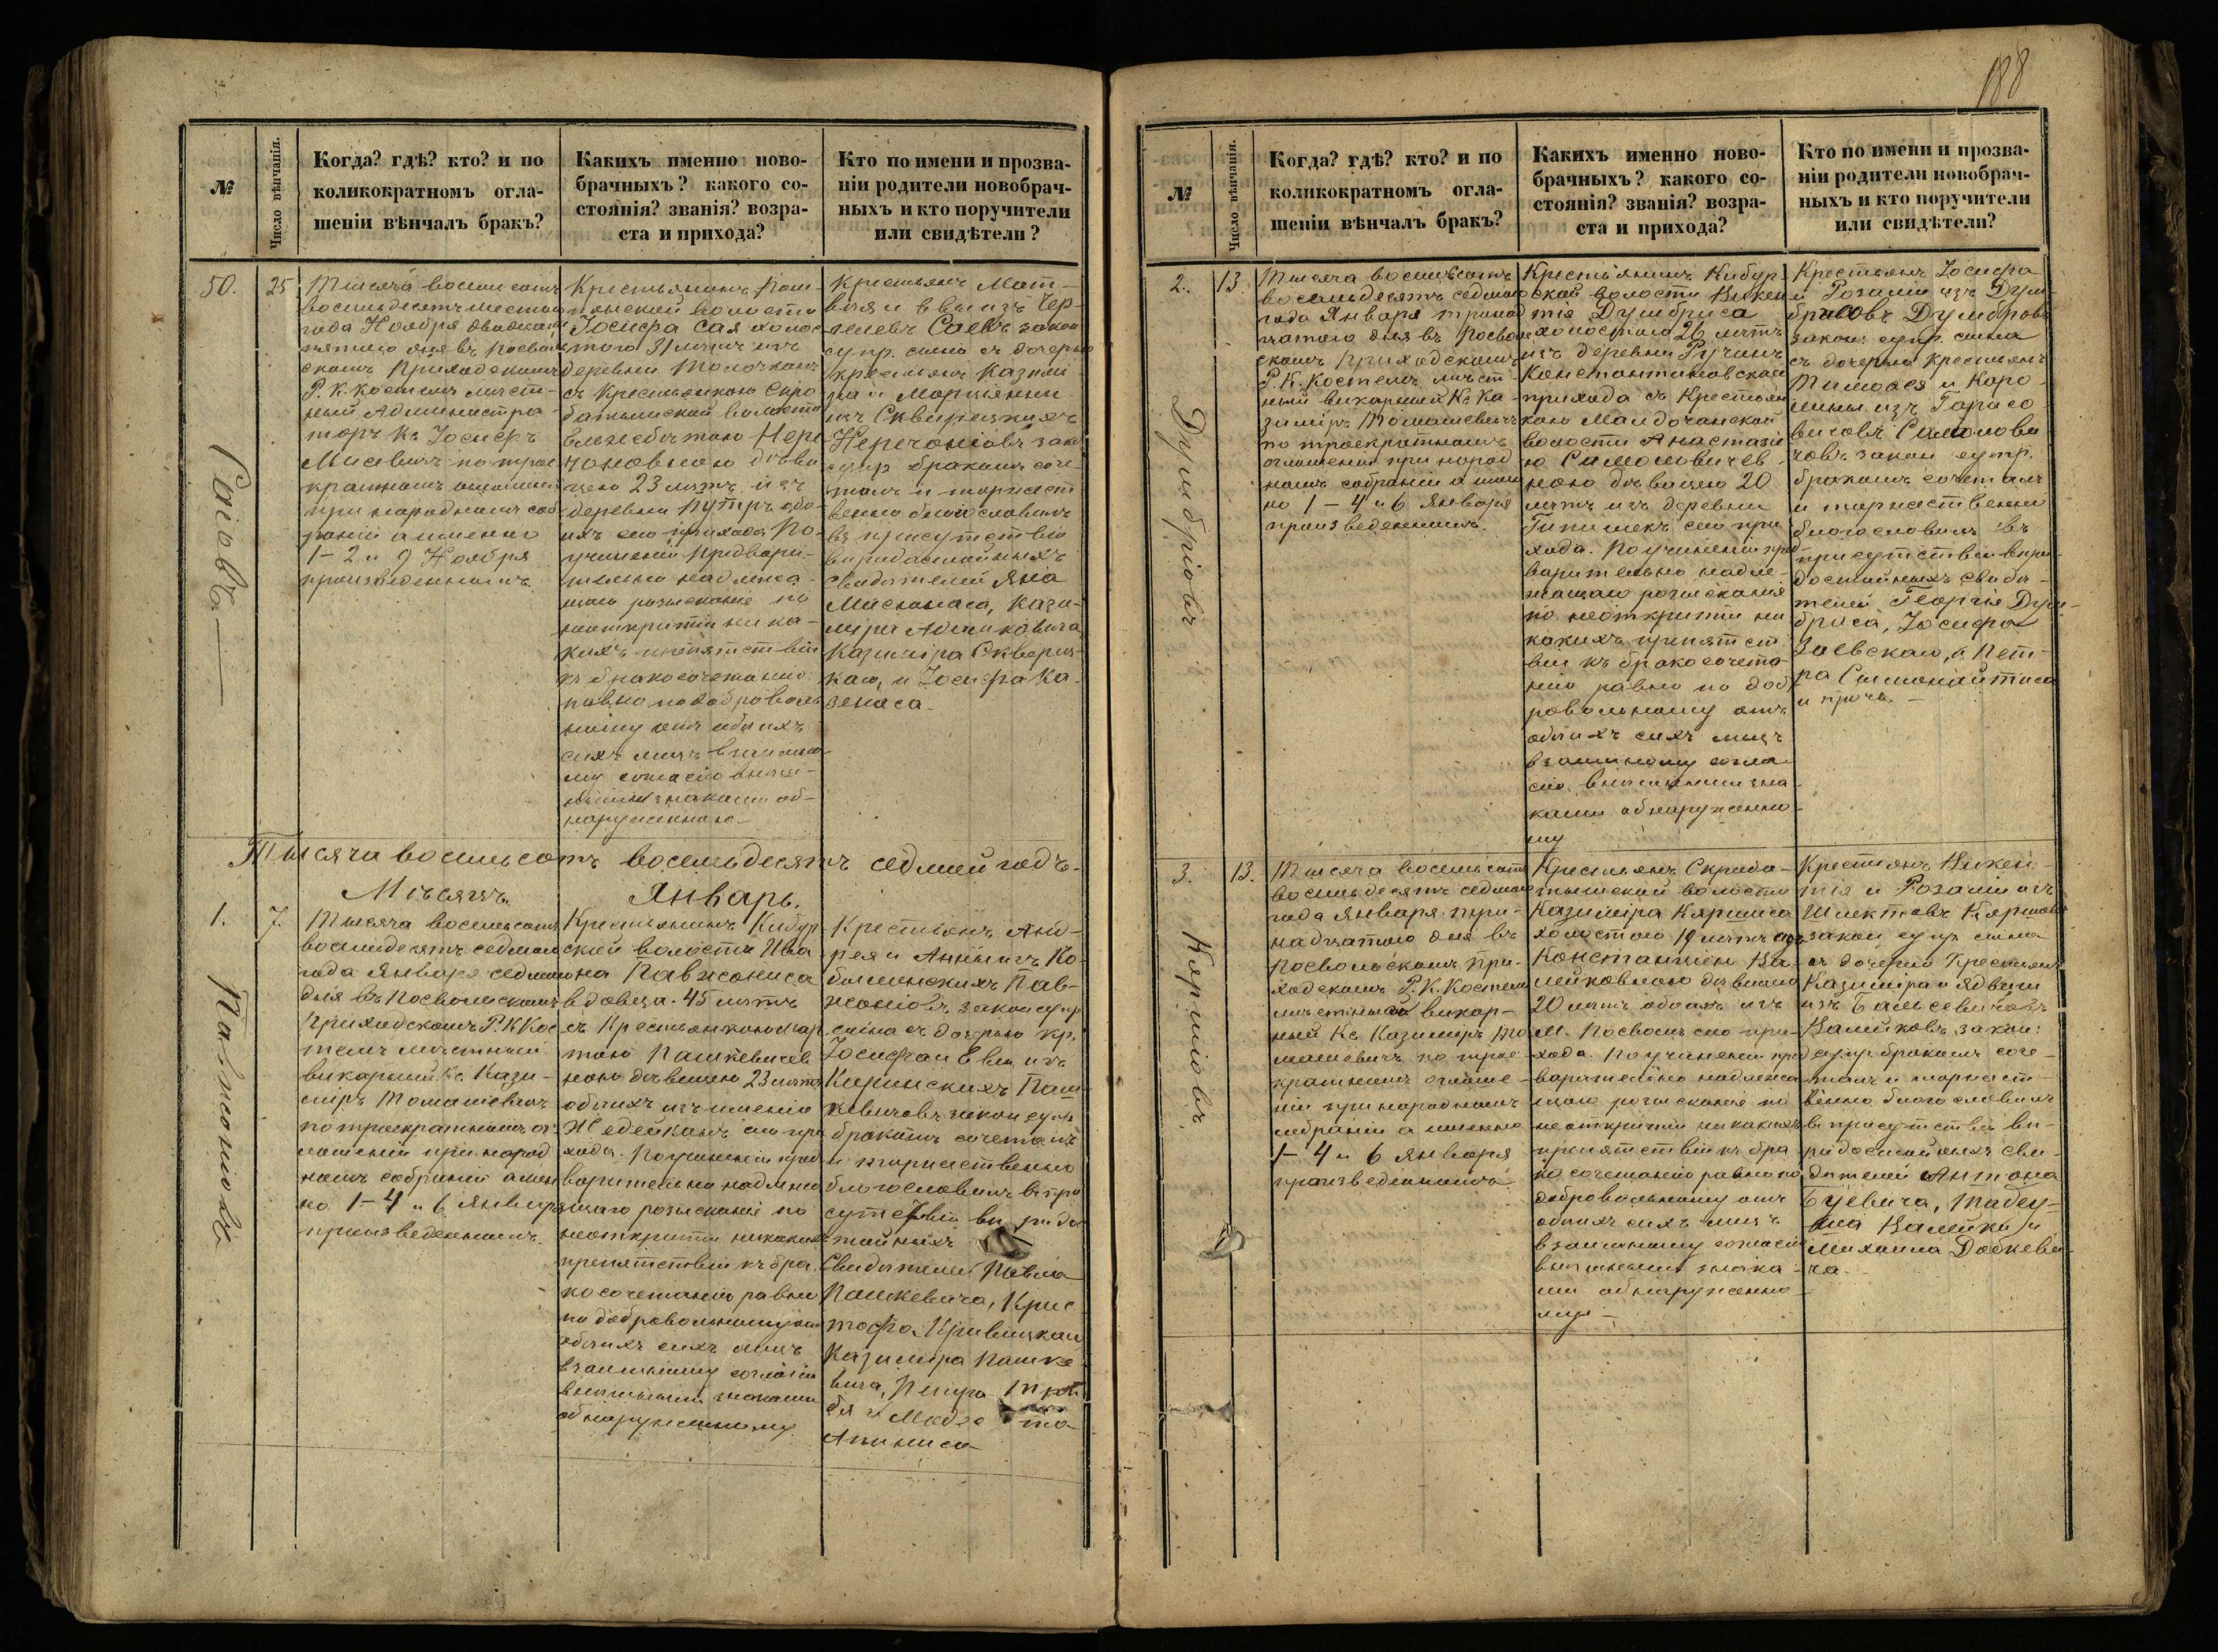 188
№
Число вѣнчанія.
Когда? гдѣ? кто? и по
коликократномъ огла-
шеніи вѣнчалъ бракъ?
Какихъ именно ново-
брачныхъ? какого со-
стоянія? званія? возра-
ста и прихода?
Кто по имени и прозва-
ніи родители новобрач-
ныхъ и кто поручители
или свидѣтели?
50.
25
Тысяча восемьсотъ
восемьдесятъ шестаго
года Ноября двадцать
пятаго дня въ Посволь
скомъ Приходскомъ
Р. К. Костелѣ мѣст-
ный Администра-
торъ Кс Іосифъ
по трое
кратномъ оглашеніи
при народномъ соб
раніи а именно
1-2 и 9 Ноября
произведенномъ.
Крестьянинъ
волости
Іосифа Сая холос
таго 31 лѣтъ изъ
деревни
съ Крестьянкою Скро
батышской волости
Елисабетою Нере
чоновною дѣви
цею 23 лѣтъ изъ
деревни обо
ихъ сего прихода По
учиненіи предвари-
тельно надлежа-
щаго розысканія по
неоткрытіи ника-
кихъ препятствій
къ бракосочетанію
равно по доброволь
ному отъ обоихъ
сихъ лицъ взаимно
му согласію внѣш-
ными знаками об-
наруженному
Крестьянъ Мат-
вѣя и Евы изъ
Саевъ закон
супр. сына съ дочерью
крестьянъ Казимі
ра и Марціянны
изъ Сквирецкихъ
Неречоніовъ зак
супр бракомъ соче
талъ и торжест
венно благословилъ
въ присутствіи
вѣридостойныхъ
свидѣтелей Яна
Мисюнаса, Кази-
міра Адамковича
Казиміра Сквериц-
каго, и Іосифа Ка-
зенаса.
Саіовъ
Тысяча восемьсотъ восемьдесятъ седмый годъ.
Мѣсяцъ Январь.
1.
7.
Тысяча восемьсотъ
восемьдесятъ седмаго
года Января седмаго
дня въ Посвольскомъ
Приходскомъ Р. К Кос
телѣ мѣстный
викарный Кс Кази-
миръ Томашевичъ
по троекратномъ ог
лашеніи при народ
номъ собраніи имен
но 1-4 и 6 Января
произведенномъ.
Крестьянинъ Кибур
ской волости Ива
на Павжониса
вдовца 45 лѣтъ
съ Крестьянкою Мар
тою Пашкевичев
ною дѣвицею 23 лѣтъ
обоихъ изъ имѣнія
сего при
хода. По учиненіи пред
варительно надлежа
щаго розысканія по
неоткрытіи никакихъ
препятствій къ бра
косочетанію равно
по добровольному отъ
обоихъ сихъ лицъ
взаимному согласію
внѣшными знаками
обнаруженному
Крестьянъ Анд-
рея и Анны изъ Ко-
Пав-
жоніовъ закон супр
сына съ дочерью кр.
Іосифа и Евы изъ
Киринскихъ Паш
кевичовъ закон супр
бракомъ сочеталъ
и торжественно
благословилъ въ при
сутствіи вѣридо
стойныхъ
Свидѣтелей Павла
Пашкевича, Крис
тофа
Казиміра Пашке
вича, Петра
и
Павжоніовъ
№
Число вѣнчанія.
Когда? гдѣ? кто? и по
коликократномъ огла-
шеніи вѣнчалъ бракъ?
Какихъ именно ново-
брачныхъ? какого со-
стоянія? званія? возра-
ста и прихода?
Кто по имени и прозва-
ніи родители новобрач-
ныхъ и кто поручители
или свидѣтели?
2.
13.
Тысяча восемьсотъ
восемьдесятъ седмаго
года Января тринад
цатаго дня въ Посволь
скомъ Приходскомъ
Р. К. Костелѣ мѣст
ный викарный Кс Ка-
зиміръ Томашевичъ
по троекратномъ
оглашеніи при народ
номъ собраніи а имен
но 1-4 и 6 Января
произведенномъ.
Крестьянинъ Кибур
ской волости Викен
тія Думбриса
холостаго 26 лѣтъ
изъ деревни Ручанъ
Константиновскаго
прихода съ Крестьян
кою
волости Анастазі
ю Самоловичев-
ною дѣвицею 20
лѣтъ изъ деревни
сего при
хода. По учиненіи пред
варительно надле-
жащаго розысканія
по неоткрытіи ни
какихъ препятст
вій къ бракосочета
нію равно по доб
ровольному отъ
обоихъ сихъ лицъ
взаимному согла
сію внѣшными зна
ками обнаруженно
му
Крестьянъ Іосифа
и Розаліи изъ Дум
брисовъ Думбровъ
закон: супр. сына
съ дочерью крестьянъ
Тимофея и Каро-
лины изъ Гарасо
вичовъ Самолови
човъ закон супр.
бракомъ сочеталъ
и торжественно
благословилъ въ
присутствіи вѣри-
достойныхъ свидѣ-
телей Георгія Дум-
бриса, Іосифа
и Пет-
ра
и проч.
Думбріовъ
3.
13.
Тысяча восемьсотъ
восемьдесятъ седмаго
года Января три-
надцатаго дня въ
Посвольскомъ При-
ходскомъ Р. К. Костелѣ
мѣстный викар-
ный Кс Казиміръ То
машевичъ по трое
кратномъ оглаше-
ніи при народномъ
собраніи а именно
1-4 и 6 Января
произведенномъ
Крестьянъ Скроба-
тышской волости
Казиміра Кяршиса
холостаго 19 лѣтъ съ
Констанціею Ва-
лейковною дѣвицею
20 лѣтъ обоихъ изъ
М. Посволь сего при-
хода. По учиненіи пред
варительно надлежа
щаго розысканія по
неоткрытіи никакихъ
препятствій къ бра
косочетанію равно по
добровольному отъ
обоихъ сихъ лицъ
взаимному согласію
внѣшными знака-
ми обнаруженно
му
Крестьянъ Викен-
тія и Розаліи изъ
Кяршовъ
закон супр сына
съ дочерью Крестьянъ
Казиміра и Ядвиги
изъ Бальсевичовъ
Валейковъ закон:
супр. бракомъ соче-
талъ и торжест-
венно благословилъ
въ присутствіи вѣ-
ридостойныхъ сви-
дѣтелей Антона
Буевича, Тадеу-
ша Валейки и
Михаила
ча.
Кяршіовъ